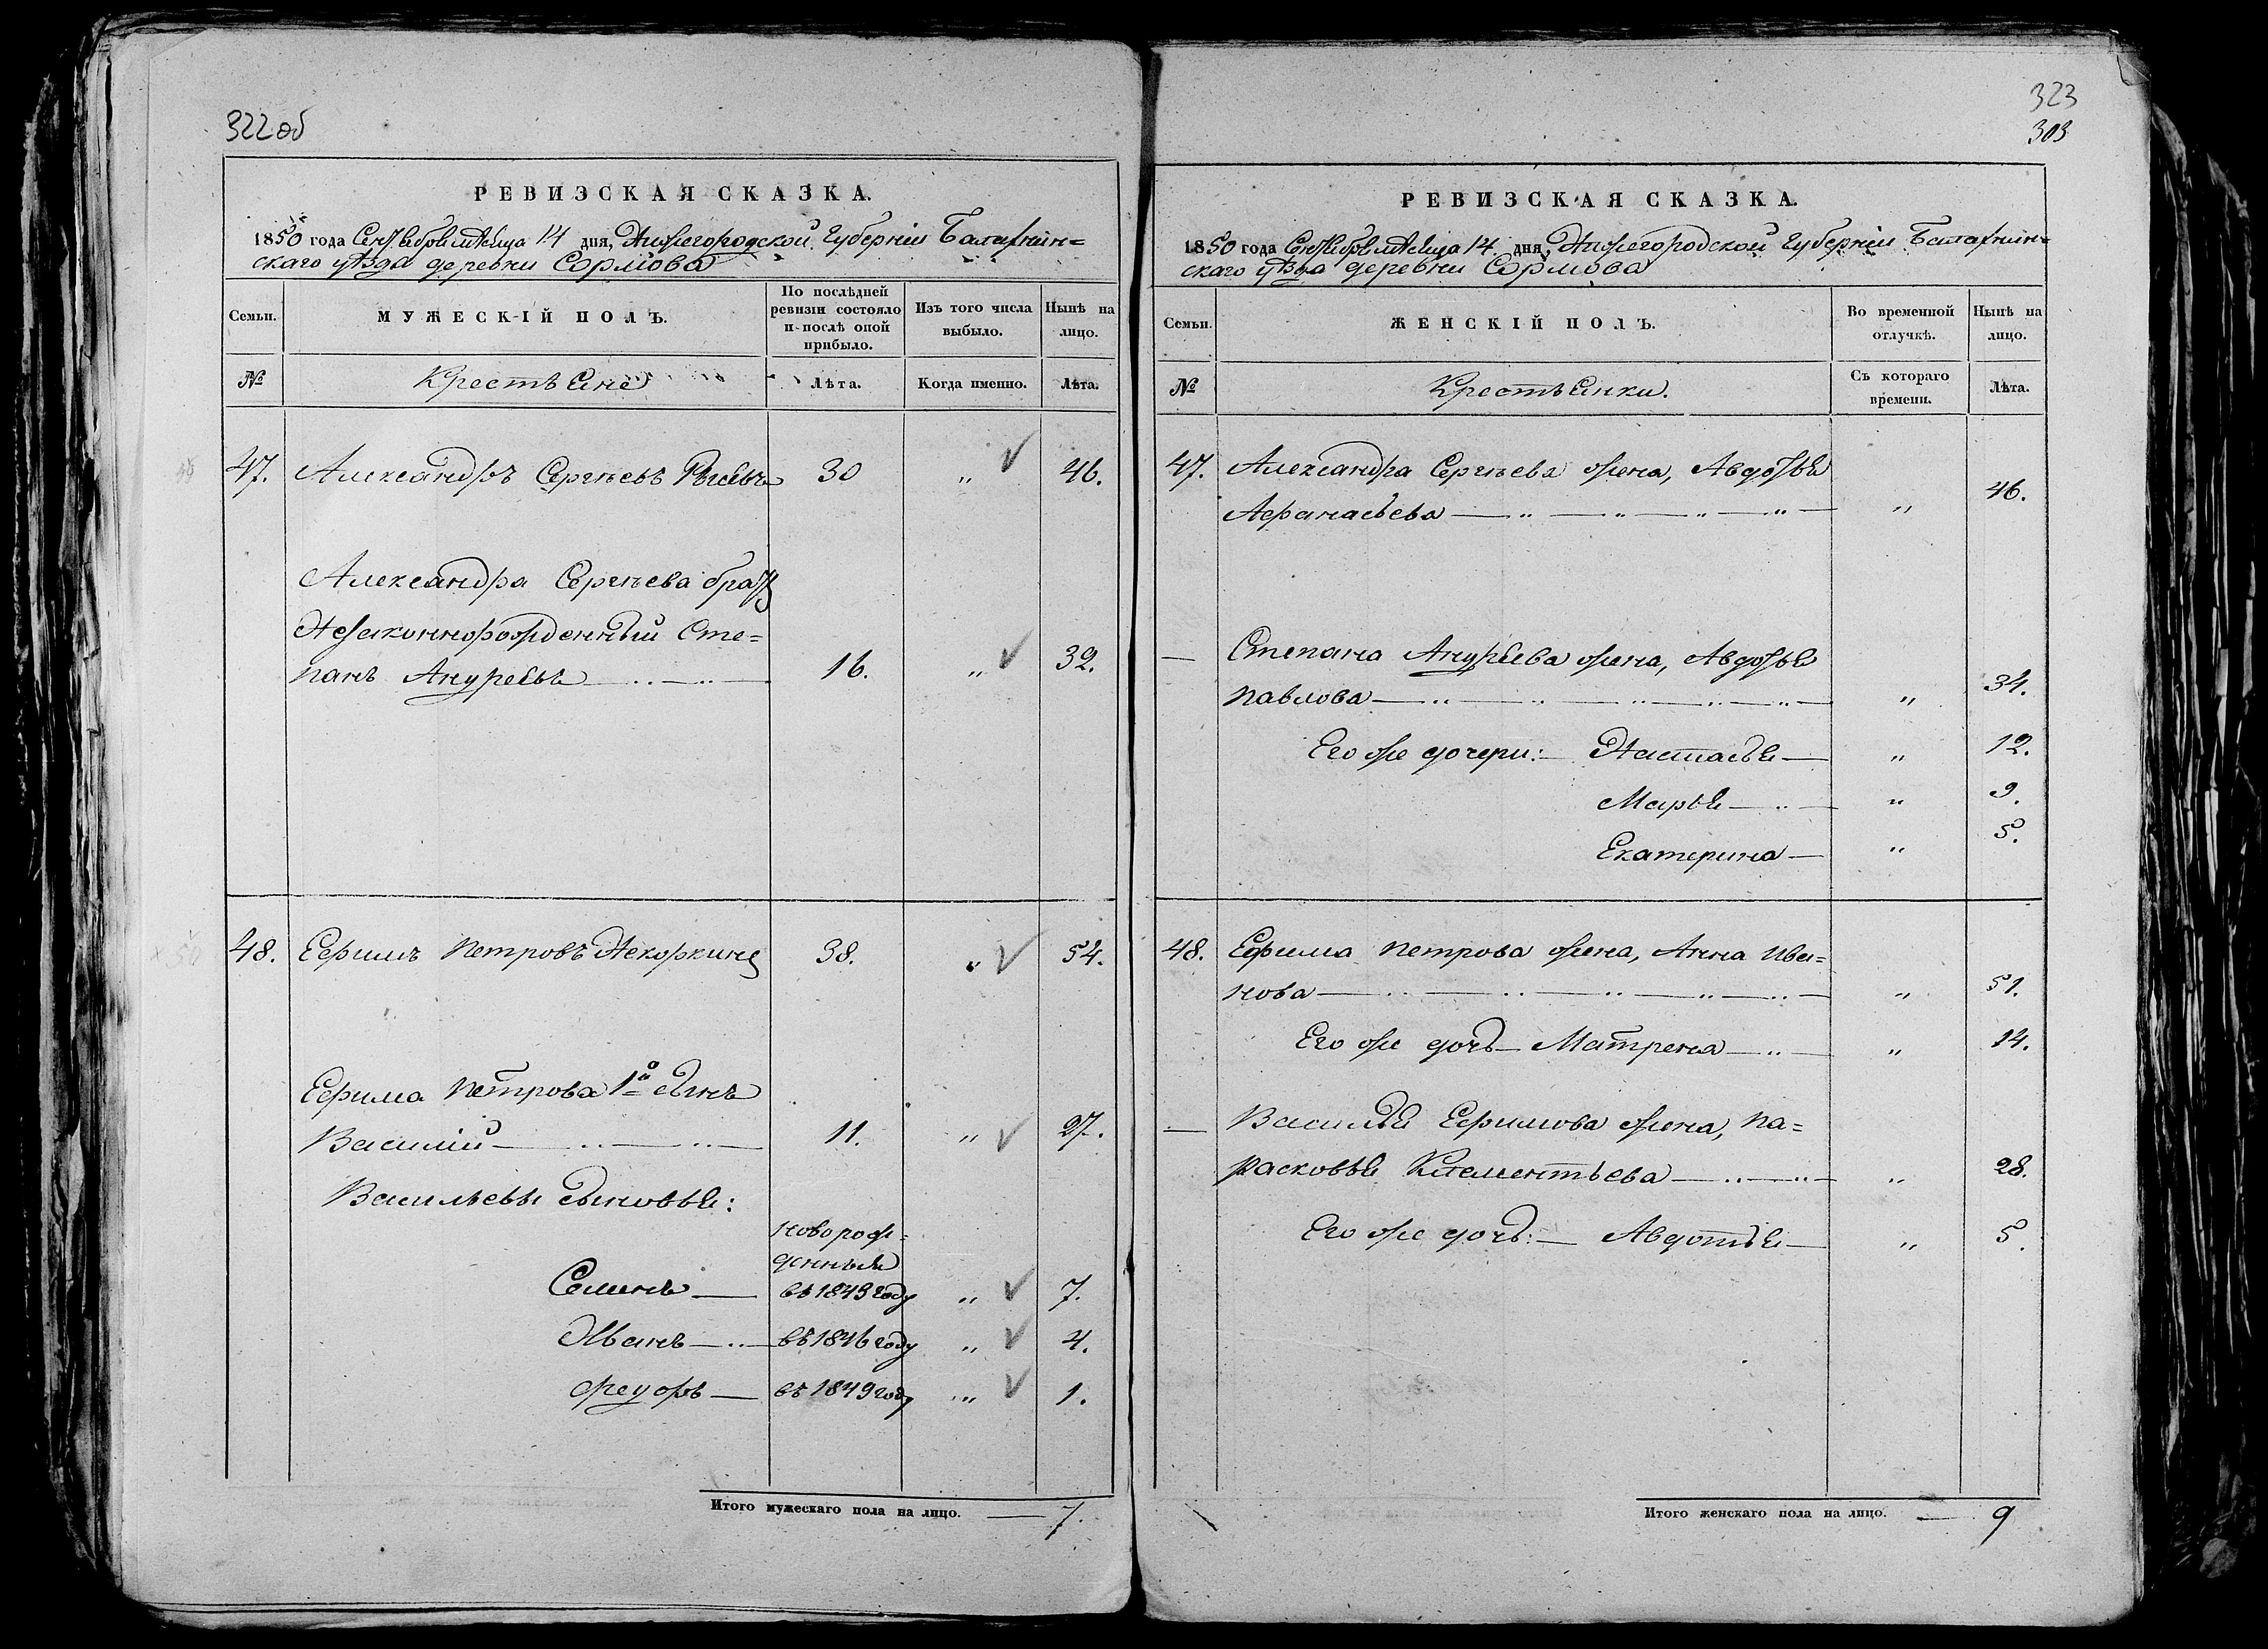 322 об
РЕВИЗСКАЯ СКАЗКА.
1850 года Сентября месяца 14 дня, Нижегородской Губерніи Балахнин=
скаго уѣзда деревни Сормова
Семьи.
МУЖЕСКІЙ ПОЛЪ.
По послѣдней
ревизіи состояло
и послѣ оной
прибыло.
Изъ того числа
выбыло.
Нынѣ на
лицо.
№
Крестьяне
Лѣта.
Когда именно.
Лѣта.
47. Александръ Сергѣевъ 30 „ 46.
Александра Сергѣева братъ
Незаконнорожденный Сте=
панъ Андреевъ 16. „ 32.
48. Ефимъ Петровъ Некоркинъ 38. „ 54.
Ефима Петрова 1й сынъ
Василій 11. „ 27.
Васильевы сыновья:
новорож=
денные
Семенъ въ 1843 году „ 7.
Иванъ въ 1846 году „ 4.
Федоръ въ 1849 году „ 1.
Итого мужескаго пола на лицо. 7.
323
303
РЕВИЗСКАЯ СКАЗКА.
1850 года Сентября месяца 14 дня, Нижегородской Губерніи Балахнин=
скаго уѣзда деревни Сормова
Семьи.
ЖЕНСКІЙ ПОЛЪ.
Во временной
отлучкѣ.
Нынѣ на
лицо.
№
Крестьянки.
Съ котораго
времени.
Лѣта.
47. Александра Сергѣева жена, Авдотья
Афанасьева „ 46.
— Степана Андреева жена, Авдотья
Павлова „ 34.
Его же дочери: Настасья „ 12.
Марья „ 9.
Екатерина „ 5.
48. Ефима Петрова жена, Анна Ива=
нова „ 51.
Его же дочь Матрена „ 14.
— Василья Ефимова жена, Па=
расковья Климентьева „ 28.
Его же дочь: Авдотья „ 5.
Итого женскаго пола на лицо. 9